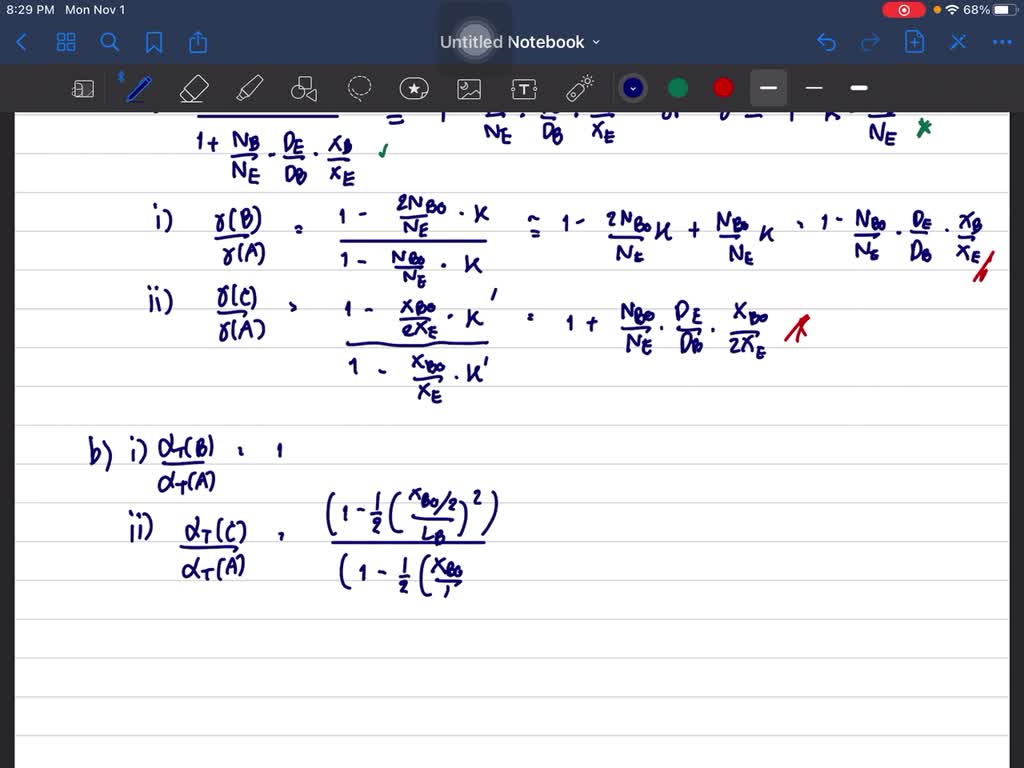 8:29 PM Mon Nov 1 68%
Untitled Notebook
T
1 + N_B/N_E · D_E/D_B · x_B/x_E ✓ = 1 - N_E · D_B · x_E or γ = 1 - K · N_E
i) γ(B)/γ(A) = (1 - 2N_B0/N_E · K) / (1 - N_B0/N_E · K) ≅ 1 - 2N_B0/N_E K + N_B0/N_E K = 1 - N_B0/N_E · D_E/D_B · x_B/x_E
ii) γ(C)/γ(A) = (1 - x_B0/2x_E · K') / (1 - x_B0/x_E · K') = 1 + N_B0/N_E · D_E/D_B · x_B0/2x_E
b) i) α_T(B)/α_T(A) = 1
ii) α_T(C)/α_T(A) = (1 - 1/2 (x_B0/2 / L_B)^2) / (1 - 1/2 (x_B0